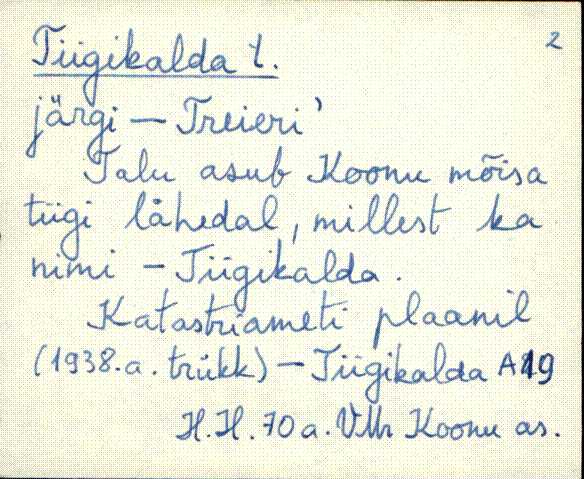 Tiigikalda t. 2
järgi — Treieri'
Talu asub Koonu mõisa
tiigi lähedal, millest ka
nimi — Tiigikalda.
Katastriameti plaanil
(1938.a. trükk) — Tiigikalda A19
H.H. 70 a. VMr Koonu as.